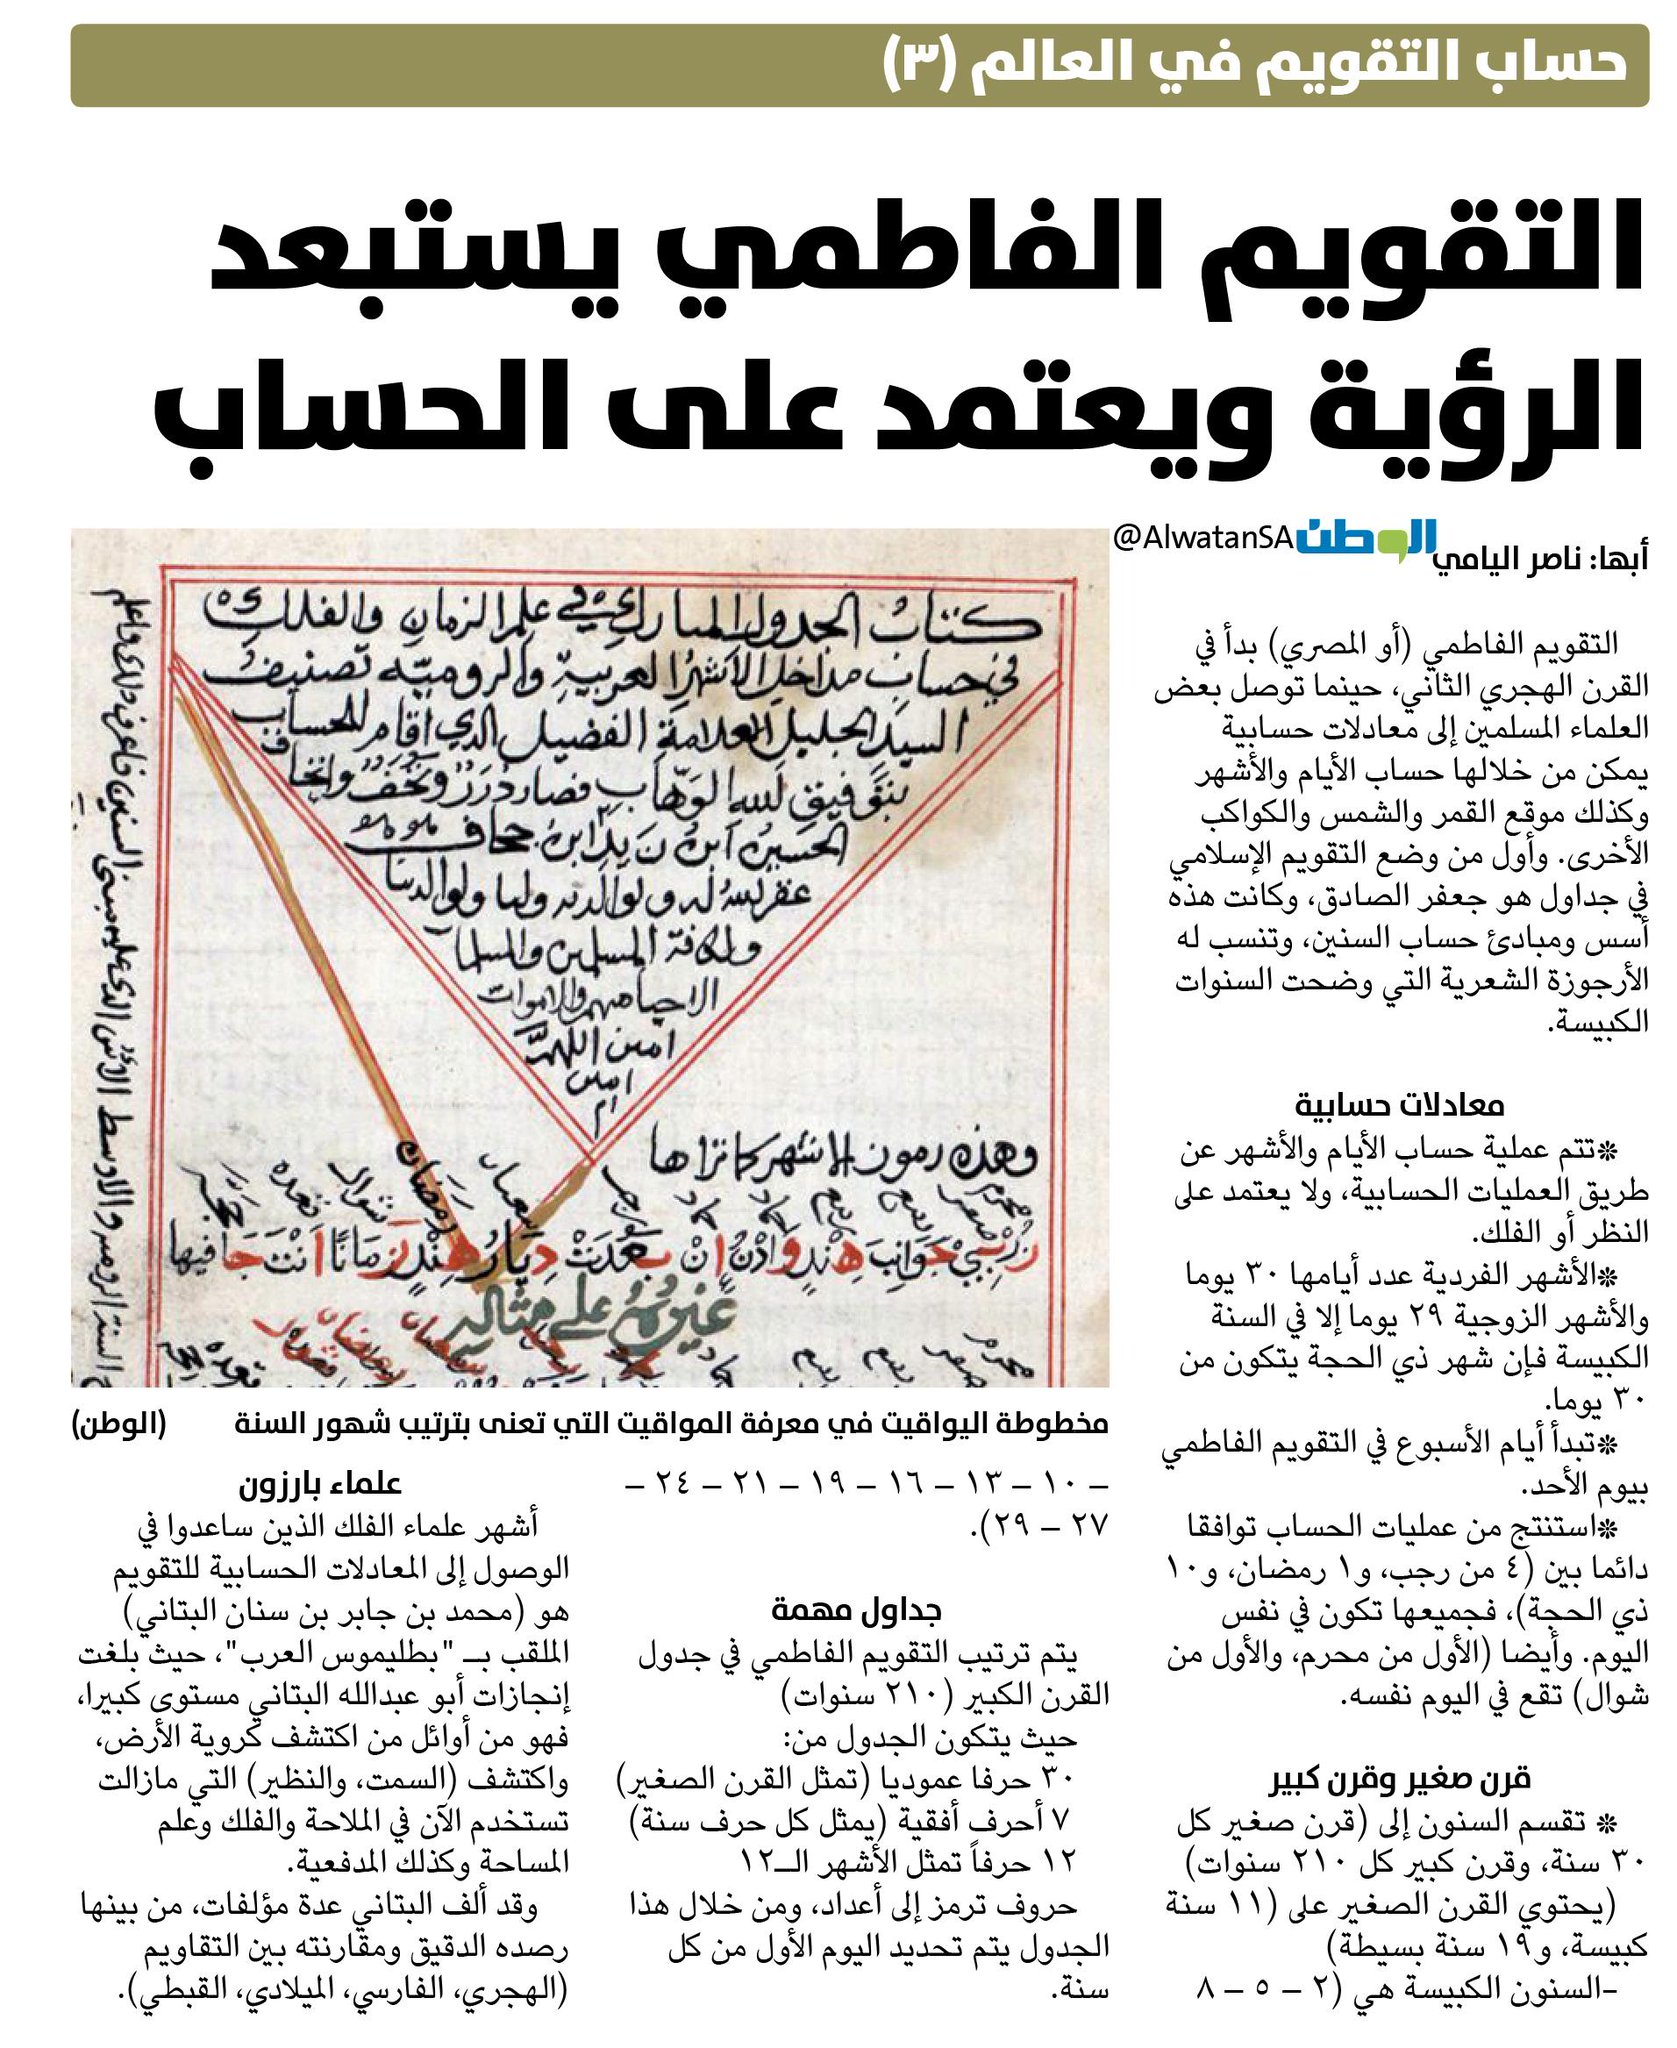 حساب التقويم في العالم (٣)
التقويم الفاطمي يستبعد
الرؤية ويعتمد على الحساب
أبها: ناصر اليامي
الوطن @AlwatanSA
التقويم الفاطمي (أو المصري) بدأ في
القرن الهجري الثاني، حينما توصل بعض
العلماء المسلمين إلى معادلات حسابية
يمكن من خلالها حساب الأيام والأشهر
وكذلك موقع القمر والشمس والكواكب
الأخرى. وأول من وضع التقويم الإسلامي
في جداول هو جعفر الصادق، وكانت هذه
أسس ومبادئ حساب السنين، وتنسب له
الأرجوزة الشعرية التي وضحت السنوات
الكبيسة.
معادلات حسابية
*تتم عملية حساب الأيام والأشهر عن
طريق العمليات الحسابية، ولا يعتمد على
النظر أو الفلك.
*الأشهر الفردية عدد أيامها ٣٠ يوما
والأشهر الزوجية ٢٩ يوما إلا في السنة
الكبيسة فإن شهر ذي الحجة يتكون من
٣٠ يوما.
*تبدأ أيام الأسبوع في التقويم الفاطمي
بيوم الأحد.
*استنتج من عمليات الحساب توافقا
دائما بين (٤ من رجب، و١ رمضان، و١٠
ذي الحجة)، فجميعها تكون في نفس
اليوم. وأيضا (الأول من محرم، والأول من
شوال) تقع في اليوم نفسه.
قرن صغير وقرن كبير
* تقسم السنون إلى (قرن صغير كل
٣٠ سنة، وقرن كبير كل ٢١٠ سنوات)
(يحتوي القرن الصغير على (١١ سنة
كبيسة، و١٩ سنة بسيطة)
-السنون الكبيسة هي (٢ – ٥ – ٨
كتاب الجدول المبارك في علم الزمان والفلك
في حساب مداخل الأشهر العربية والرومية تصنيف
السيد الجليل العلامة الفضيل الذي أقام للحساب
الحسين ابن زيد ابن جحاف
غفر لله له ولوالديه ولنا ولوالدينا
ولكافة المسلمين والمسلمات
الاحيا منهم والاموات
امين اللهم
امين
وهذه رموز الاشهر كما تراها
هند وادن إن بعدت ديار هند زمانا أنت جافيها
غيره على مثاله
مخطوطة اليواقيت في معرفة المواقيت التي تعنى بترتيب شهور السنة (الوطن)
– ١٠ – ١٣ – ١٦ – ١٩ – ٢١ – ٢٤ –
٢٧ – ٢٩).
جداول مهمة
يتم ترتيب التقويم الفاطمي في جدول
القرن الكبير (٢١٠ سنوات)
حيث يتكون الجدول من:
٣٠ حرفا عموديا (تمثل القرن الصغير)
٧ أحرف أفقية (يمثل كل حرف سنة)
١٢ حرفاً تمثل الأشهر الـ١٢
حروف ترمز إلى أعداد، ومن خلال هذا
الجدول يتم تحديد اليوم الأول من كل
سنة.
علماء بارزون
أشهر علماء الفلك الذين ساعدوا في
الوصول إلى المعادلات الحسابية للتقويم
هو (محمد بن جابر بن سنان البتاني)
الملقب بـ "بطليموس العرب"، حيث بلغت
إنجازات أبو عبدالله البتاني مستوى كبيرا،
فهو من أوائل من اكتشف كروية الأرض،
واكتشف (السمت، والنظير) التي مازالت
تستخدم الآن في الملاحة والفلك وعلم
المساحة وكذلك المدفعية.
وقد ألف البتاني عدة مؤلفات، من بينها
رصده الدقيق ومقارنته بين التقاويم
(الهجري، الفارسي، الميلادي، القبطي).